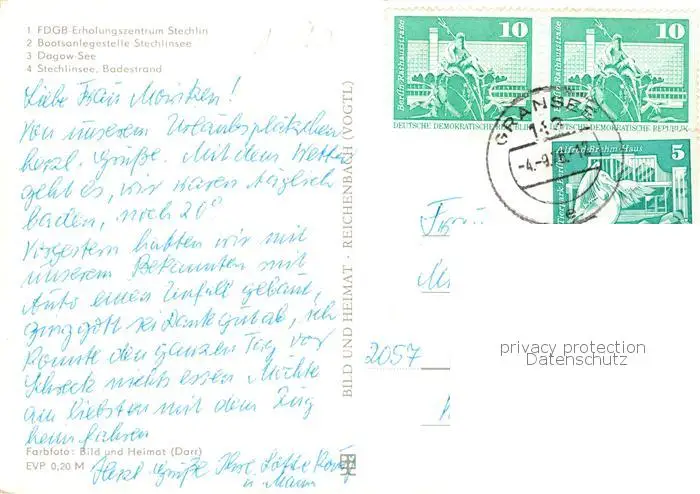 1 FDGB-Erholungszentrum Stechlin
2 Bootsanlegestelle Stechlinsee
3 Dagow-See
4 Stechlinsee, Badestrand
Liebe Frau
Von unserem Urlaubsplätzchen
herzl. Grüße. Mit dem Wetter
geht es, wir waren täglich
baden, noch 20°
Vorgestern hatten wir mit
unserem Bekannten mit
Auto einen Unfall gebaut,
ging gott sei Dank gut ab, ich
konnte den ganzen Tag vor
Schreck nichts essen Möchte
am liebsten mit dem Zug
heimfahren
Farbfoto: Bild und Heimat (Darr)
EVP 0,20 M
Herzl Grüße Ihre
u. Mann
BILD UND HEIMAT · REICHENBACH (VOGTL)
Berlin Rathausstraße
10
DEUTSCHE DEMOKRATISCHE REPUBLIK
Berlin Rathausstraße
10
DEUTSCHE DEMOKRATISCHE REPUBLIK
GRANSEE
Alfred-Brehm-Haus
5
Frau
2057
privacy protection
Datenschutz